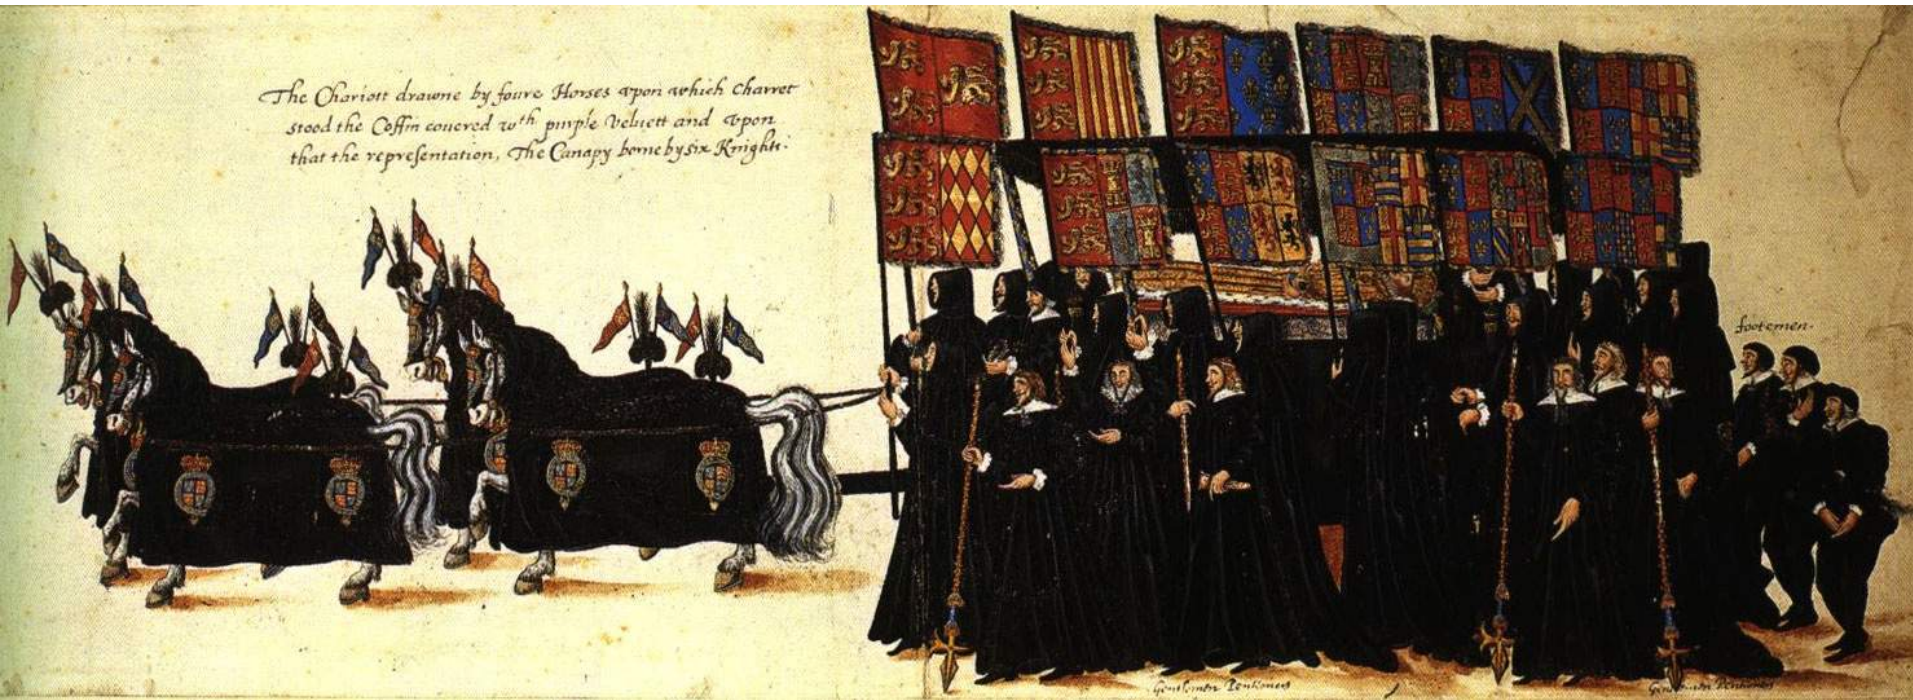 The Chariott drawne by foure Horses vpon which Charret
stood the Coffin couered wth purple veluett and vpon
that the representation, The Canapy borne by six Knights.
footemen.
Gentlemen Pentioners
Gentlemen Pentioners